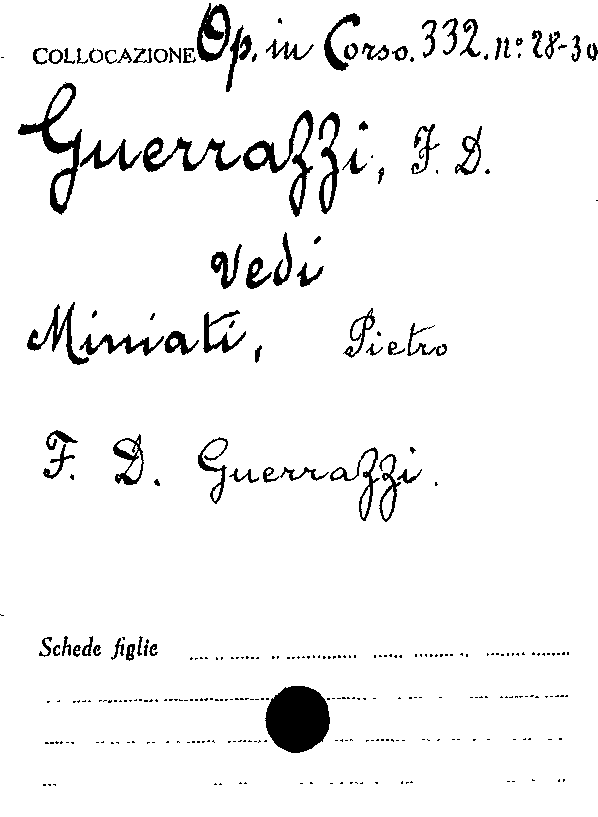 COLLOCAZIONE Op. in Corso. 332. n.º 28-30
Guerrazzi, F. D.
Vedi
Miniati, Pietro
F. D. Guerrazzi.
Schede figlie